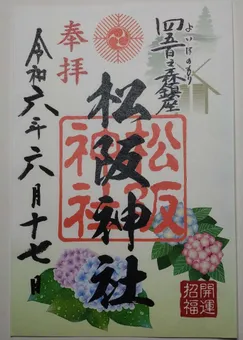 四五百之森鎮座
よいほのもり
奉拝
松阪神社
松阪神社
令和六年六月十七日
開運招福